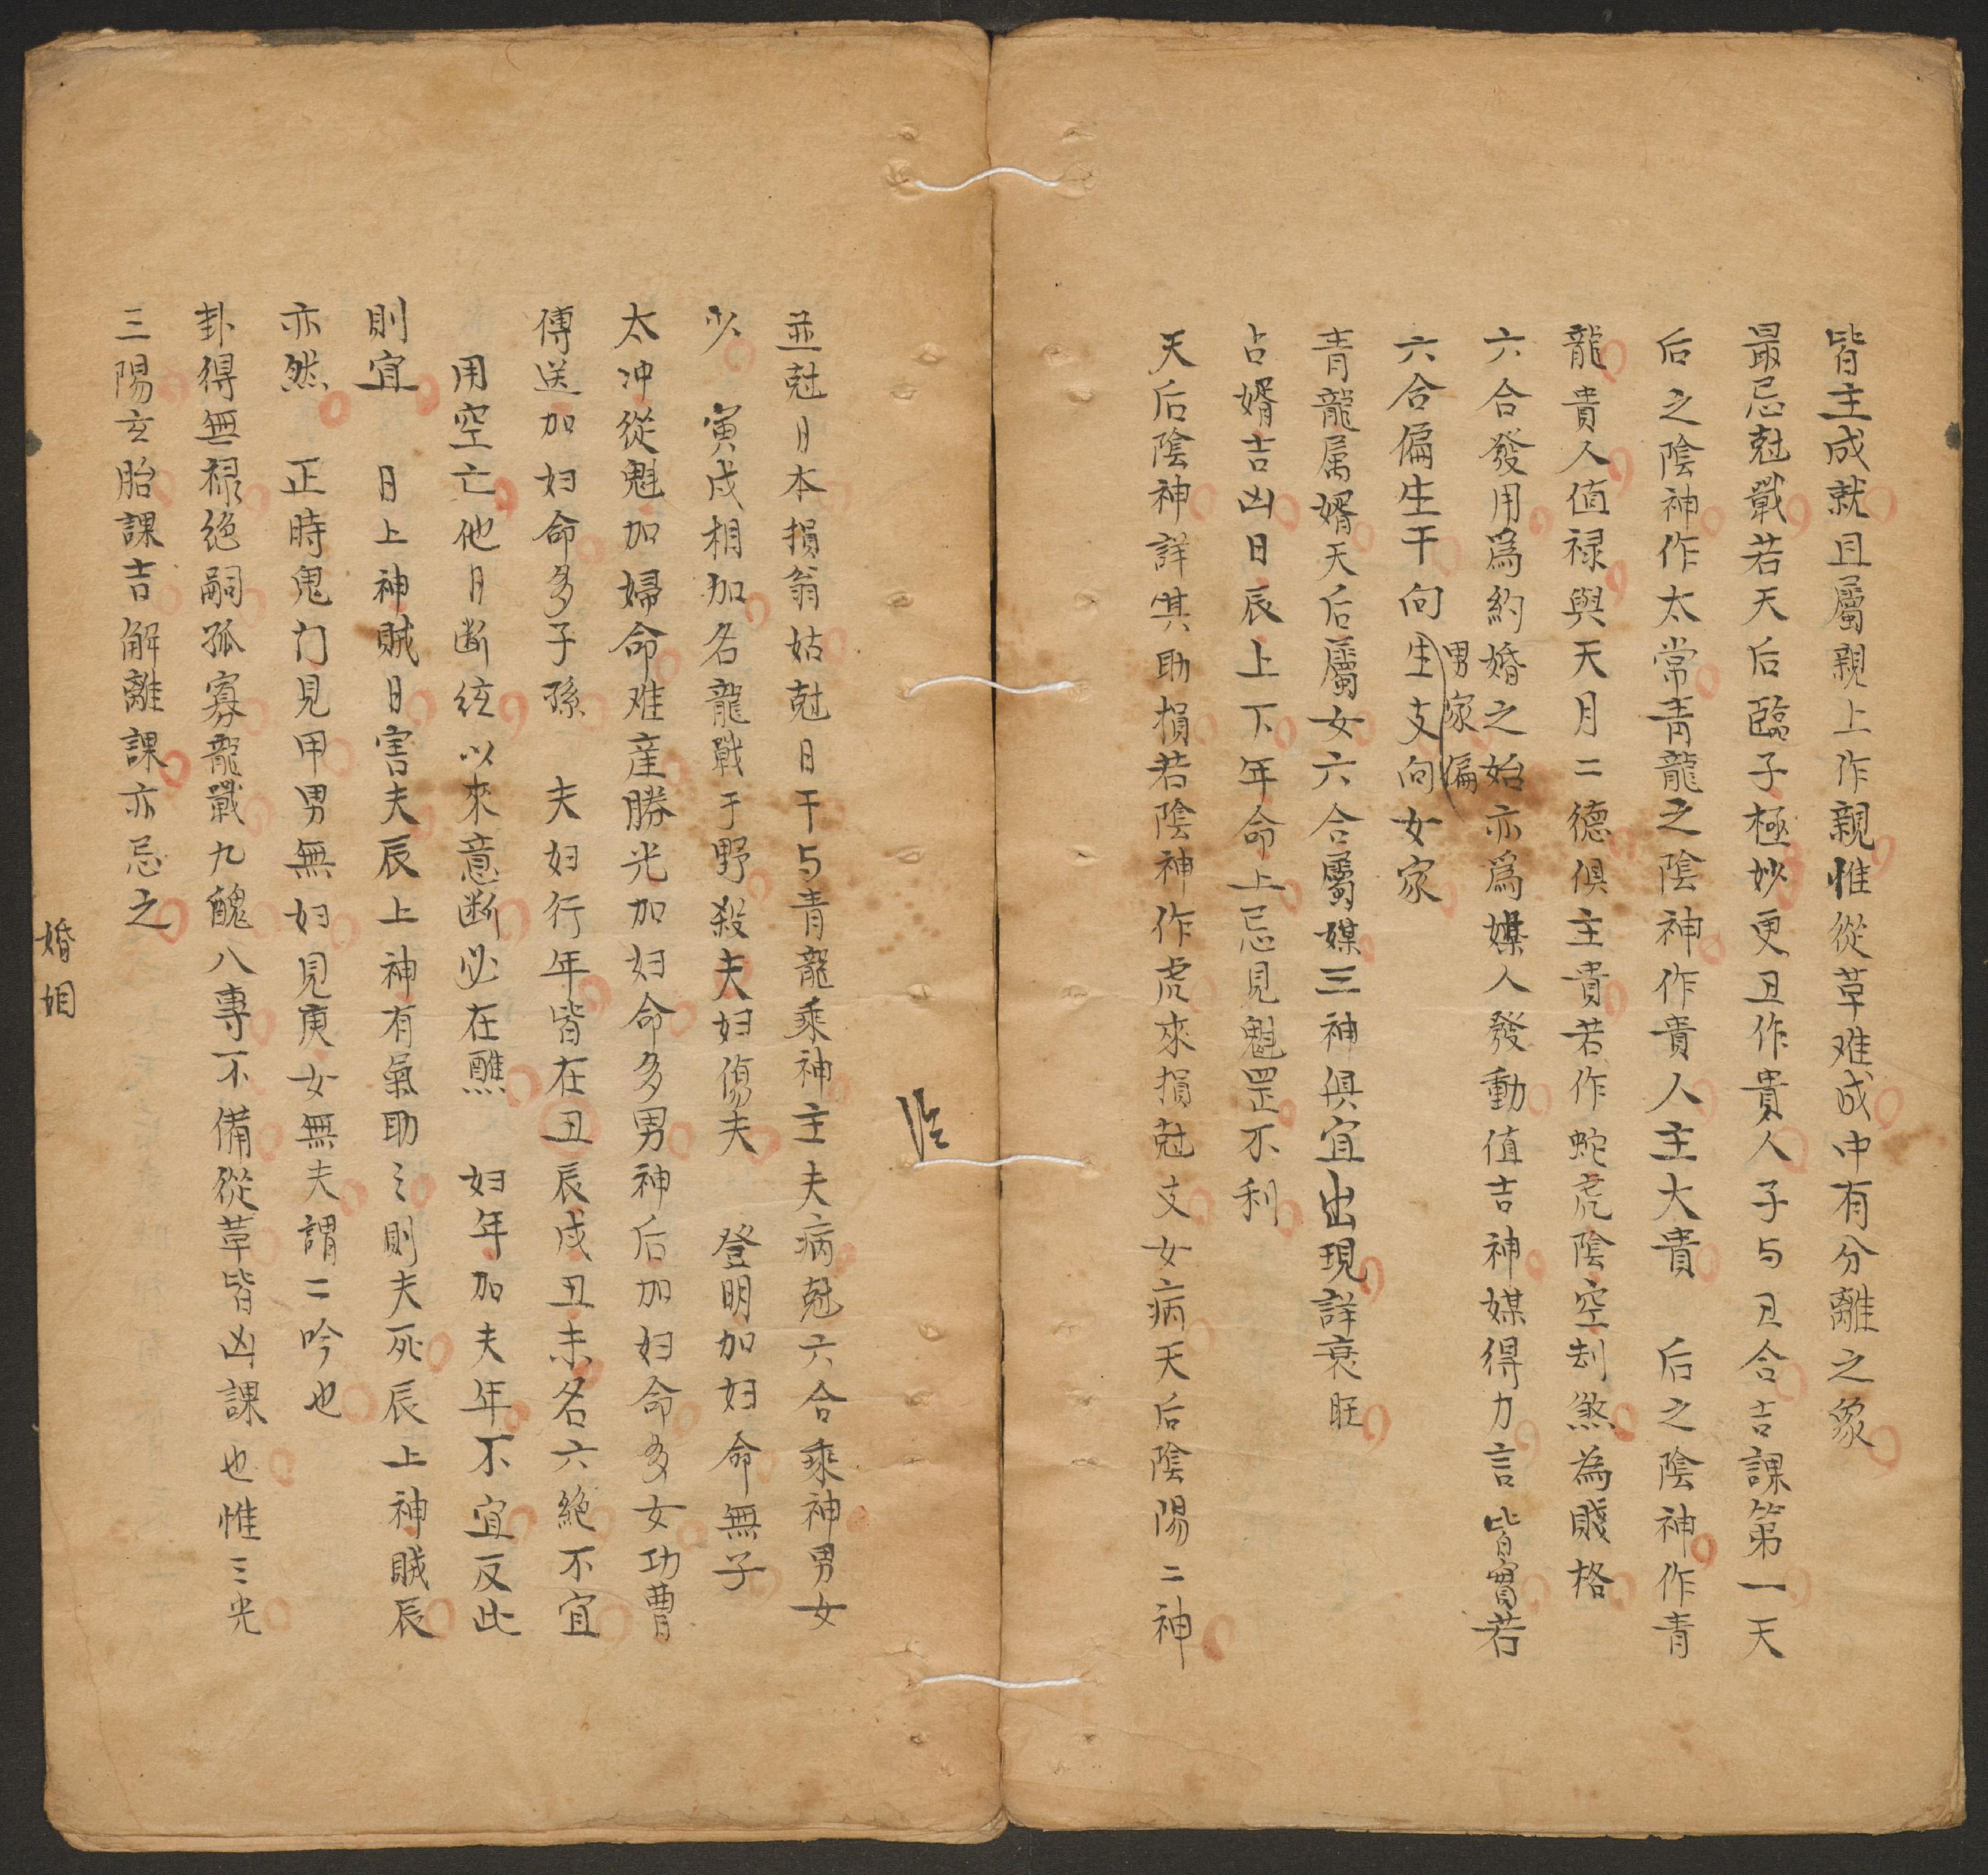 皆主成就且屬親上作親惟從革难成中有分離之象
最忌尅戰若天后臨子極妙更丑作貴人子与丑合吉課第一天
后之陰神作太常青龍之陰神作貴人主大貴　后之陰神作青
龍貴人值禄與天月二德俱主貴若作蛇虎陰空刦煞為賤格
六合發用爲約婚之始亦爲媒人發動值吉神媒得力言皆實若
男家偏
六合偏生干向生支向女家
青龍属婿天后屬女六合屬媒三神俱宜出現詳衰旺
占婿吉凶日辰上下年命上忌見魁罡不利
天后陰神詳其助損若陰神作虎來損尅支女病天后陰陽二神
並尅日本損翁姑尅日干与青龍乘神主夫病尅六合乘神男女
少　寅戌相加名龍戰于野殺夫妇傷夫　登明加妇命無子
太冲從魁加婦命难産勝光加妇命多男神后加妇命多女功曹
傳送加妇命多子孫　夫妇行年皆在丑辰戌丑未名六絶不宜
用空亡他日断絃以來意断必在醮　妇年加夫年不宜反此
則宜　日上神賊日害夫辰上神有氣助之則夫死辰上神賊辰
亦然　正時鬼门見甲男無妇見庚女無夫謂二吟也
卦得無禄絶嗣孤寡龍戰九醜八專不備從革皆凶課也惟三光
三陽玄胎課吉解離課亦忌之
婚姻